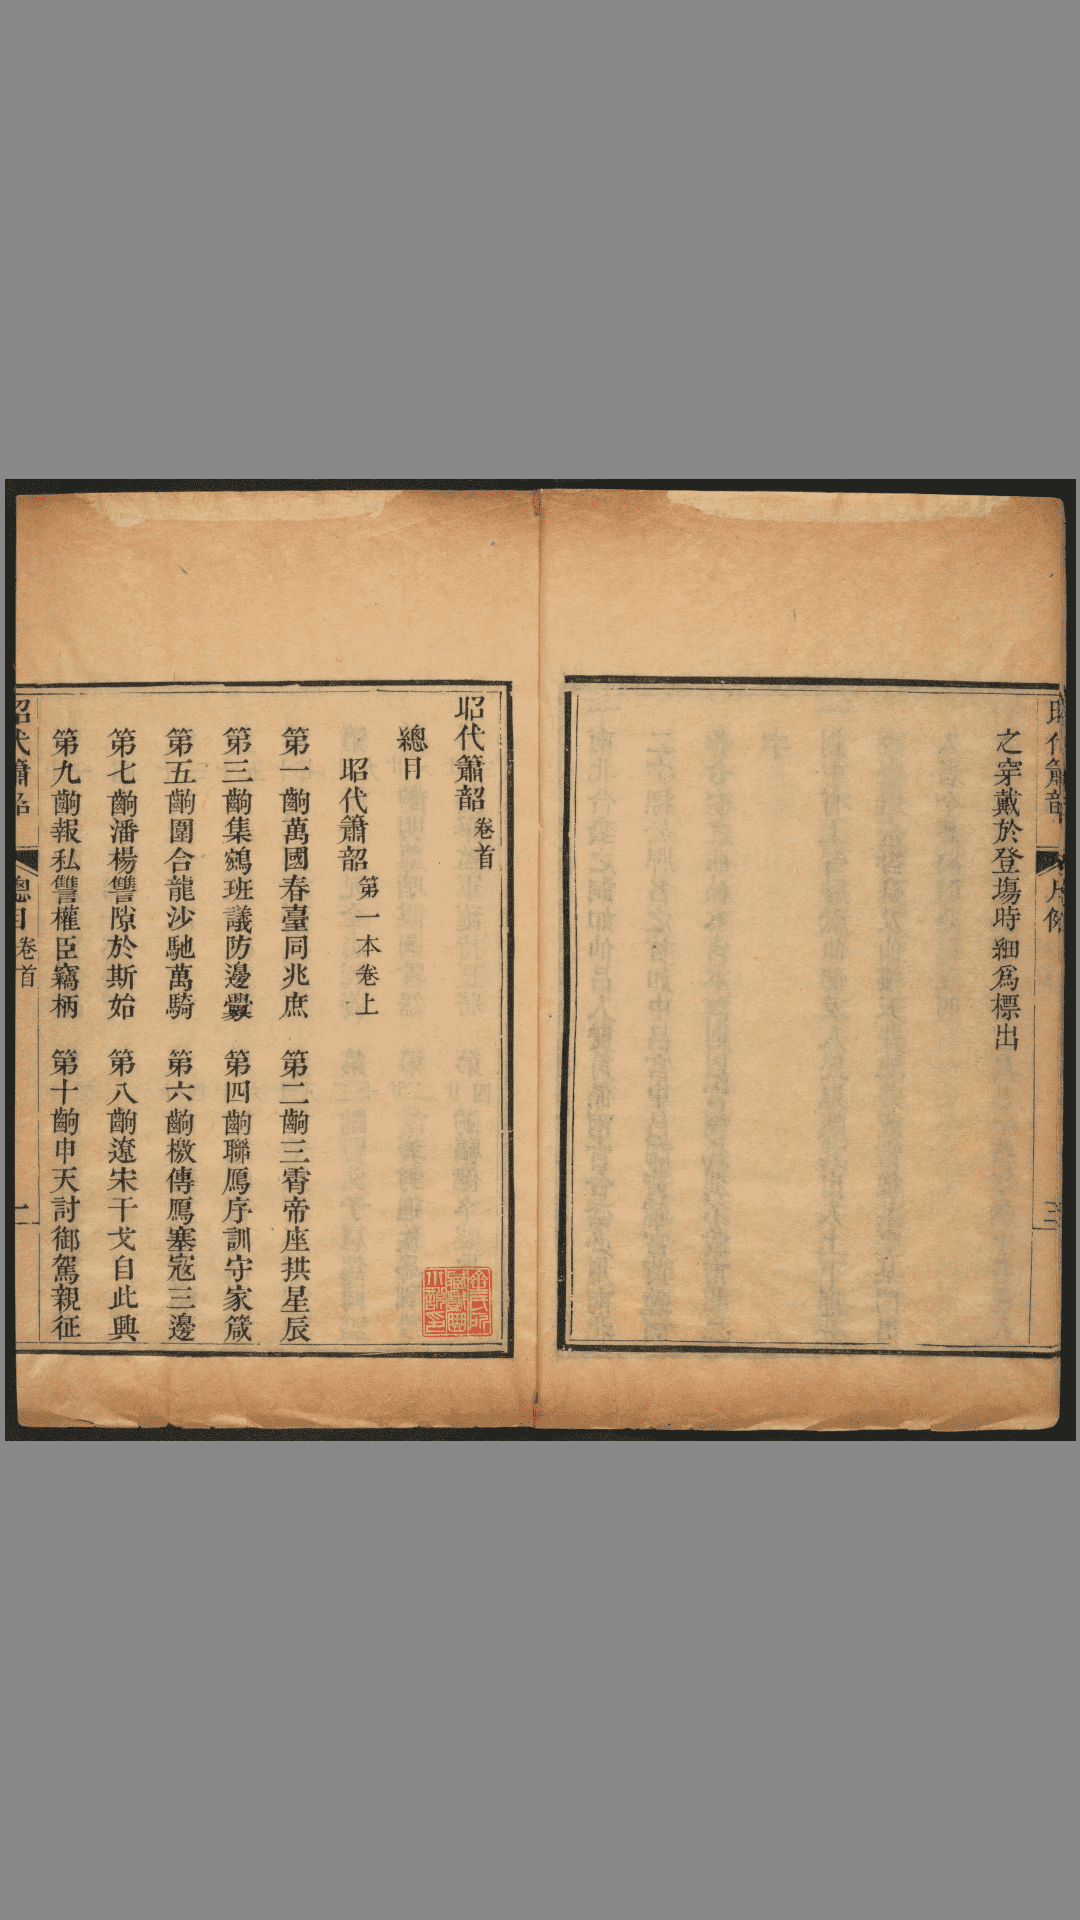 之穿戴於登塲時細爲標出
三
昭代簫韶卷首
總目
昭代簫韶第一本卷上
第一齣萬國春臺同兆庶　第二齣三霄帝座拱星辰
第三齣集鵷班議防邊釁　第四齣聯鴈序訓守家箴
第五齣圍合龍沙馳萬騎　第六齣檄傳鴈塞寇三邊
第七齣潘楊讐隙於斯始　第八齣遼宋干戈自此興
第九齣報私讐權臣竊柄　第十齣申天討御駕親征
昭代簫韶　總目卷首　一